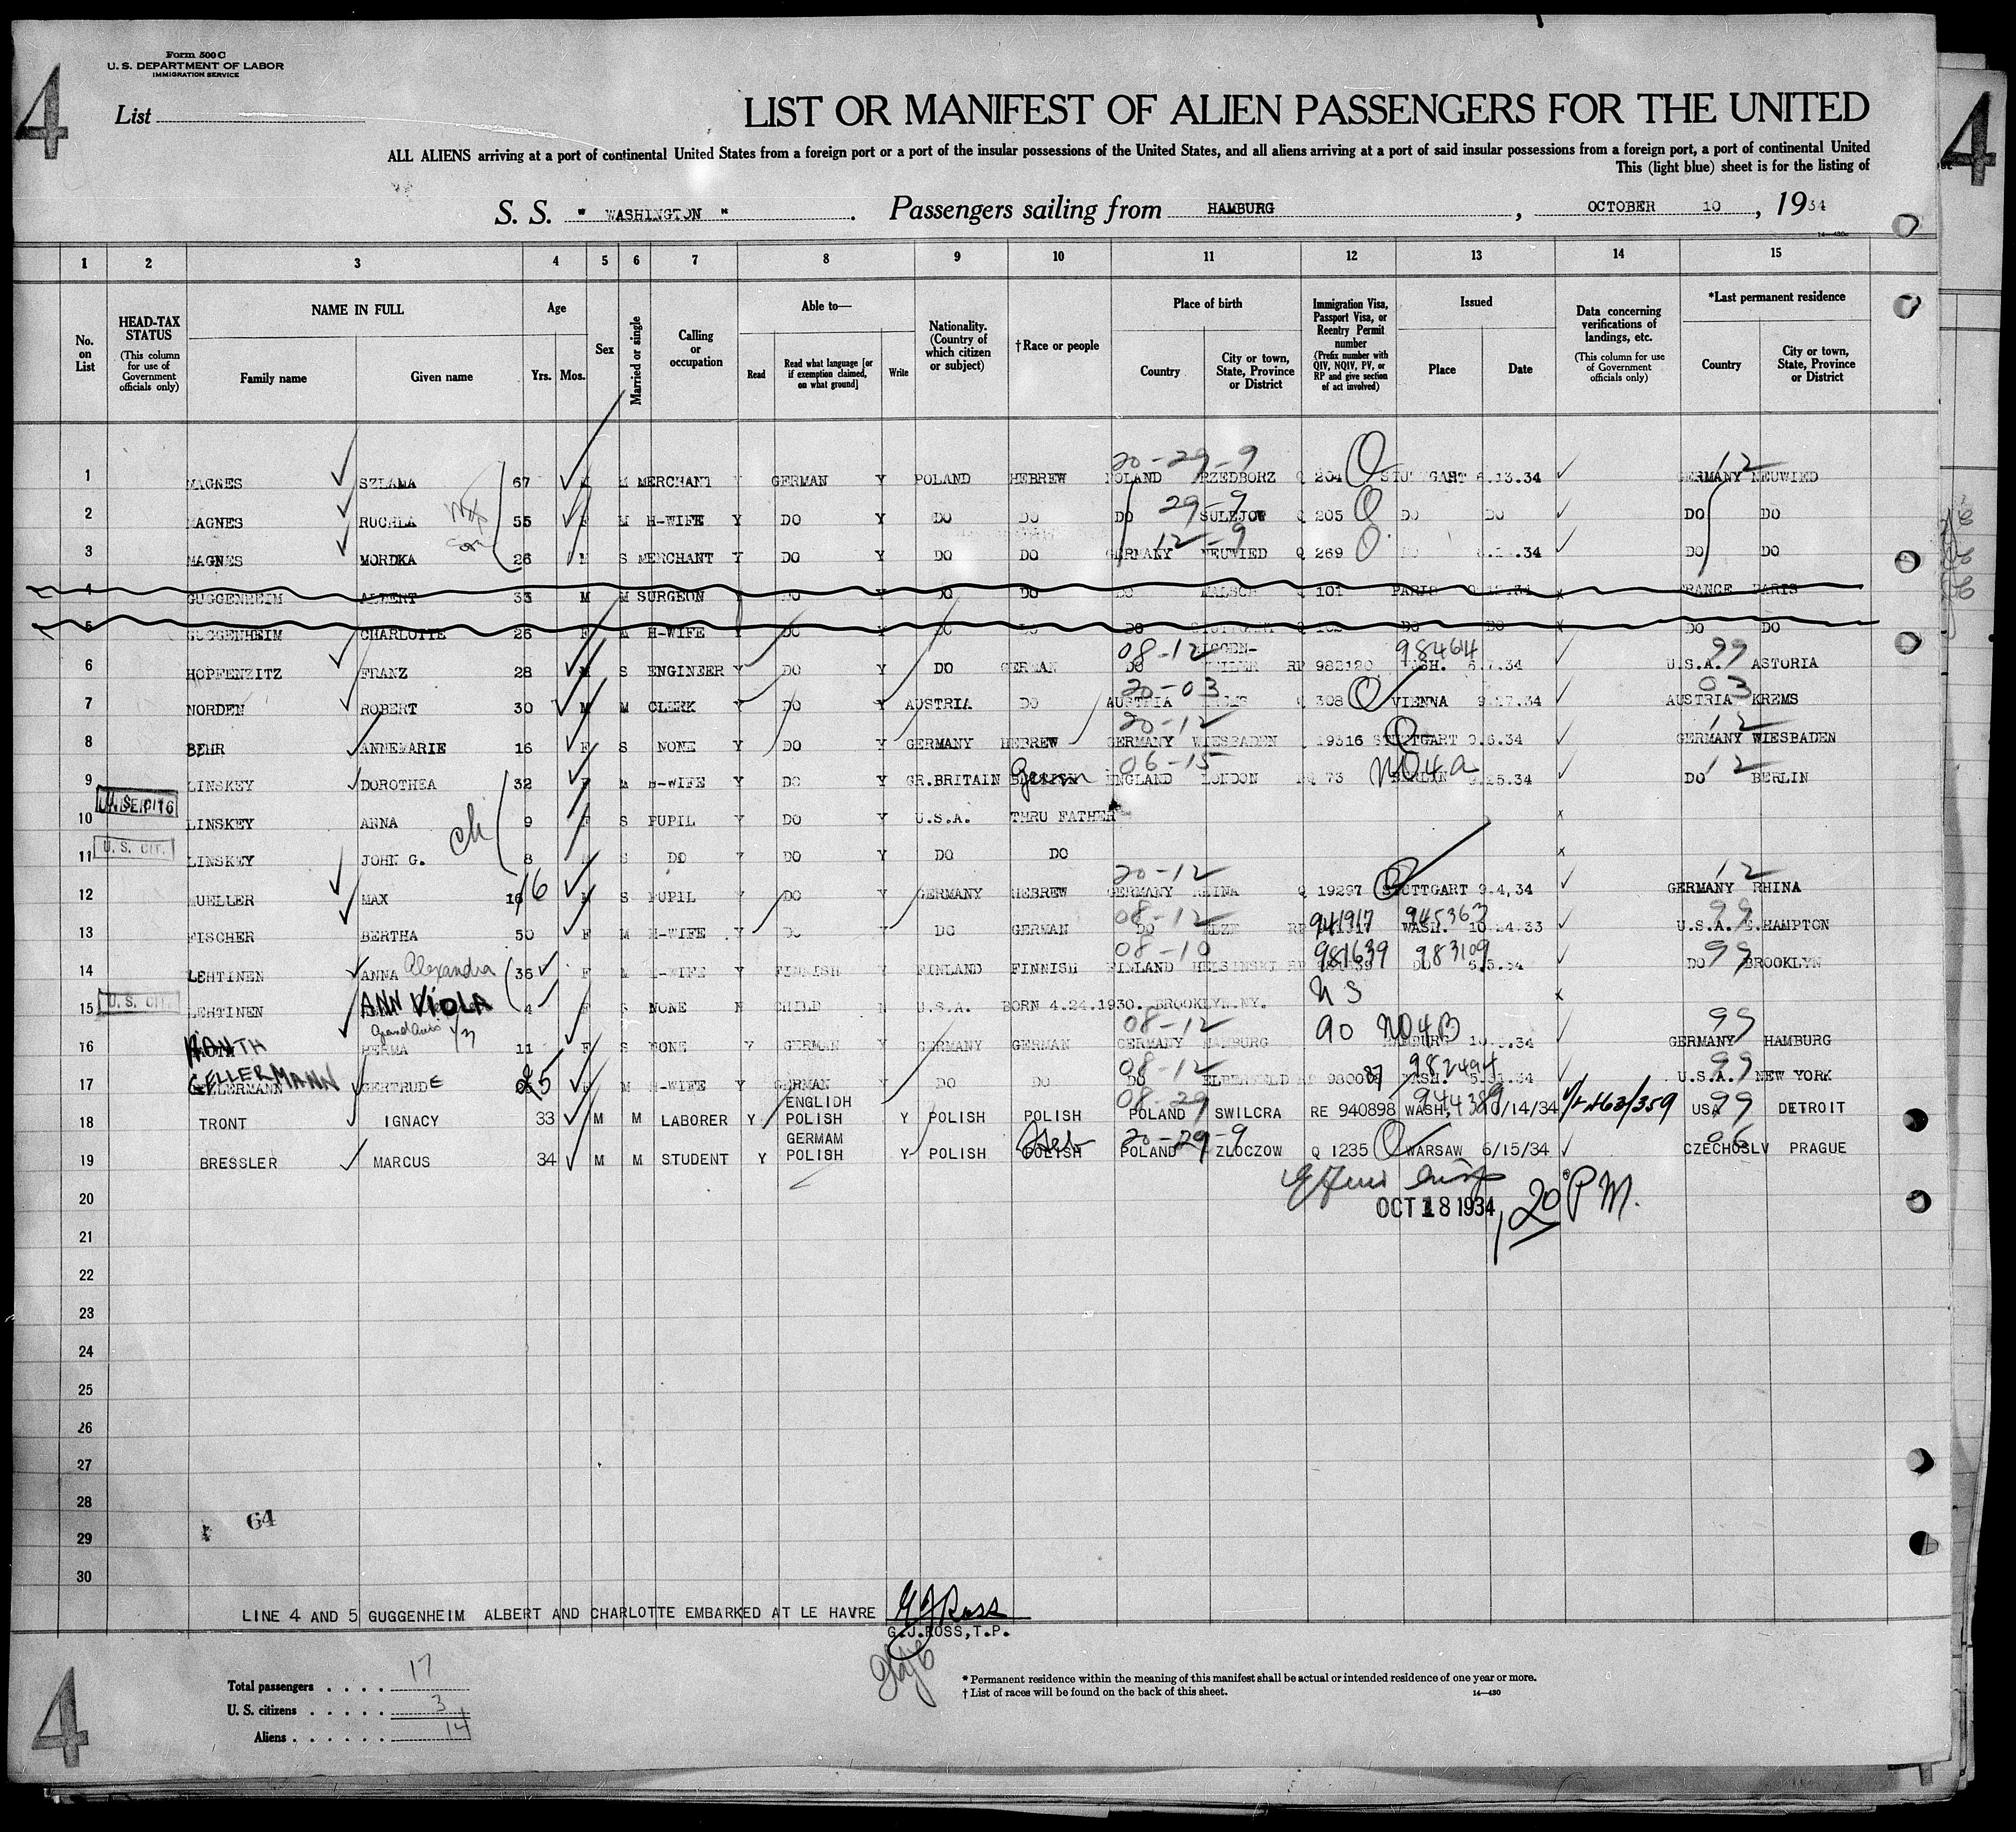 Form 500 C
U. S. DEPARTMENT OF LABOR
IMMIGRATION SERVICE
4
List
LIST OR MANIFEST OF ALIEN PASSENGERS FOR THE UNITED
4
ALL ALIENS arriving at a port of continental United States from a foreign port or a port of the insular possessions of the United States, and all aliens arriving at a port of said insular possessions from a foreign port, a port of continental United
This (light blue) sheet is for the listing of
S. S. " WASHINGTON " . Passengers sailing from HAMBURG , OCTOBER 10 , 19 34
1 2 3 4 5 6 7 8 9 10 11 12 13 14 15
No. on List
HEAD-TAX STATUS (This column for use of Government officials only)
NAME IN FULL Family name Given name
Age Yrs. Mos.
Sex
Married or single
Calling or occupation
Able to— Read Read what language [or if exemption claimed, on what ground] Write
Nationality. (Country of which citizen or subject)
†Race or people
Place of birth Country City or town, State, Province or District
Immigration Visa, Passport Visa, or Reentry Permit number (Prefix number with QIV, NQIV, PV, or RP and give section of act involved)
Issued Place Date
Data concerning verifications of landings, etc. (This column for use of Government officials only)
*Last permanent residence Country City or town, State, Province or District
20-29-9 12
1 MAGNES SZLAMA 67 M MERCHANT Y GERMAN Y POLAND HEBREW POLAND RZEDBORZ Q 204 STUTTGART 6.13.34 GERMANY NEUWIED
29-9
2 MAGNES RUCHLA 55 F M H-WIFE Y DO Y DO DO DO SULEJOW Q 205 DO DO DO DO
son 12-9
3 MAGNES MORDKA 26 M S MERCHANT Y DO Y DO DO GERMANY NEUWIED Q 269 DO .34 DO DO
4 GUGGENHEIM ALBERT 33 M M SURGEON DO Y DO DO DO MALSCH Q 101 PARIS .34 FRANCE PARIS
5 GUGGENHEIM CHARLOTTE 26 F M H-WIFE DO Y DO DO DO STUTTGART Q DO DO DO DO
08-12 98464 99
6 HOPFENZITZ FRANZ 28 M S ENGINEER Y DO Y DO GERMAN DO RP 982120 WASH. 6.7.34 U.S.A. ASTORIA
20-03 03
7 NORDEN ROBERT 30 M M CLERK Y DO Y AUSTRIA DO AUSTRIA KREMS Q 308 VIENNA 9.27.34 AUSTRIA KREMS
20-12 12
8 BEHR ANNEMARIE 16 F S NONE Y DO Y GERMANY HEBREW GERMANY WIESBADEN 19316 STUTTGART 9.6.34 GERMANY WIESBADEN
06-15 NO4a 12
9 LINSKEY DOROTHEA 32 F M H-WIFE Y DO Y GR.BRITAIN German ENGLAND LONDON 73 BERLIN 9.25.34 DO BERLIN
10 LINSKEY ANNA 9 F S PUPIL Y DO Y U.S.A. THRU FATHER x
ch
11 U. S. CIT. LINSKEY JOHN G. 8 M S DO Y DO Y DO DO x
20-12 12
12 MUELLER MAX 16 M S PUPIL Y DO Y GERMANY HEBREW GERMANY RHINA Q 19297 STUTTGART 9.4,34 GERMANY RHINA
08-12 941917 945363 99
13 FISCHER BERTHA 50 F M H-WIFE Y DO Y DO GERMAN DO ELZE WASH. 10.24.33 U.S.A. S.HAMPTON
08-10 981639 983109 99
14 LEHTINEN ANNA Alexandra 36 F M H-WIFE Y FINNISH Y FINLAND FINNISH FINLAND HELSINSKI DO 6.5.34 DO BROOKLYN
15 U. S. CIT. LEHTINEN ANN VIOLA 4 F S NONE N CHILD N U.S.A. BORN 4.24.1930. BROOKLYN.NY. U S x
08-12 99
16 HERMA 11 F S NONE Y GERMAN Y GERMANY GERMAN GERMANY HAMBURG 90 NO4B HAMBURG .34 GERMANY HAMBURG
08-12 982494 99
17 GELLERMANN GERTRUDE 5 F M H-WIFE Y GERMAN Y DO DO DO ELBERFELD 980087 WASH. .34 U.S.A. NEW YORK
ENGLIDH 08-29 944389 99
18 TRONT IGNACY 33 M M LABORER Y POLISH Y POLISH POLISH POLAND SWILCRA RE 940898 WASH, 10/14/34 463/359 USA DETROIT
GERMAM Heb 20-29-9 06
19 BRESSLER MARCUS 34 M M STUDENT Y POLISH Y POLISH POLISH POLAND ZLOCZOW Q 1235 WARSAW 6/15/34 CZECHOSLV PRAGUE
20
OCT 18 1934 1 20 PM.
21
22
23
24
25
26
27
28
64
29
30
LINE 4 AND 5 GUGGENHEIM ALBERT AND CHARLOTTE EMBARKED AT LE HAVRE G J Ross
G.J.ROSS,T.P.
Total passengers . . . . 17
U. S. citizens . . . . . 3
Aliens . . . . . . 14
* Permanent residence within the meaning of this manifest shall be actual or intended residence of one year or more.
† List of races will be found on the back of this sheet. 14—430
4